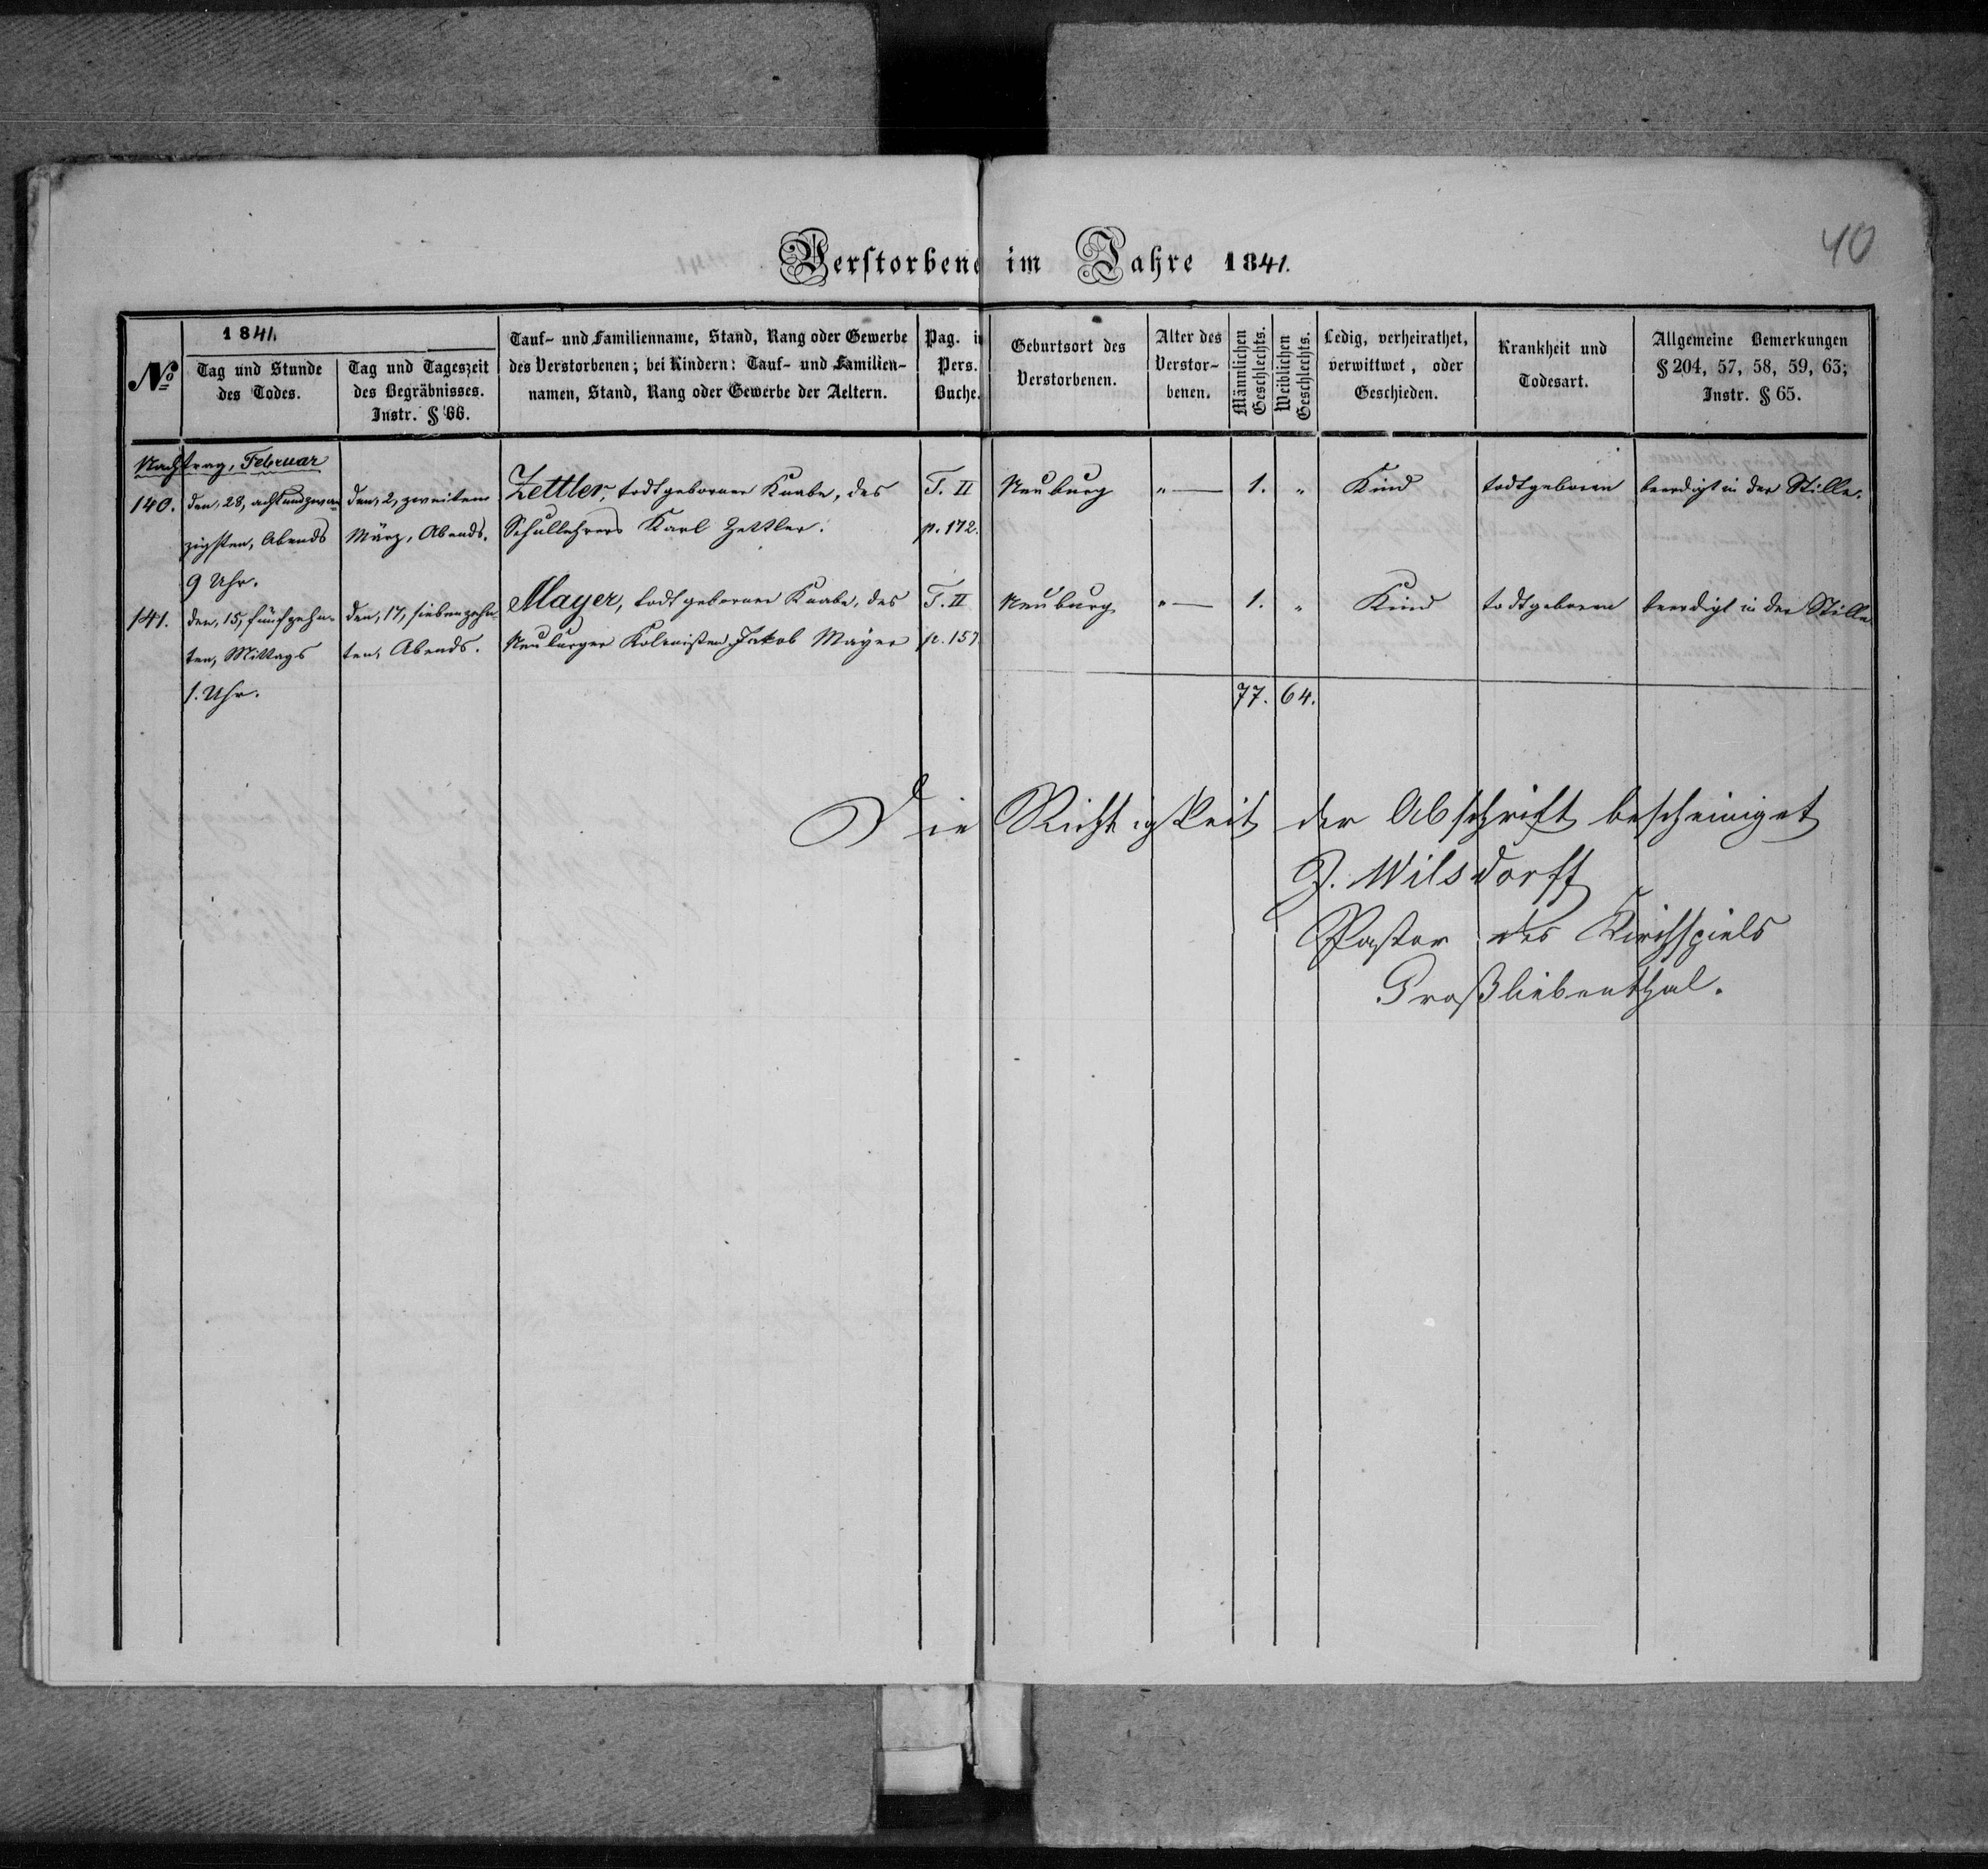 Verstorbene im Jahre 1841.
40
No
1841.
Tag und Stunde
des Todes.
Tag und Tageszeit
des Begräbnisses.
Instr. § 66.
Tauf- und Familienname, Stand, Rang oder Gewerbe
des Verstorbenen; bei Kindern: Tauf- und Familien-
namen, Stand, Rang oder Gewerbe der Aeltern.
Pag. in
Pers.
Buche.
Geburtsort des
Verstorbenen.
Alter des
Verstor-
benen.
Männlichen
Geschlechts.
Weiblichen
Geschlechts.
Ledig, verheirathet,
verwittwet, oder
Geschieden.
Krankheit und
Todesart.
Allgemeine Bemerkungen
§ 204, 57, 58, 59, 63;
Instr. § 65.
Nachtrag, Februar
140.
den, 28, achtundzwan
zigsten, Abends
9 Uhr.
den, 2, zweiten
März, Abends.
Zettler, todtgeborner Knabe, des
Schullehrers Karl Zettler.
T. II
p. 172.
Neuburg
" —
1.
"
Kind
todtgeboren
beerdigt in der Stille.
141.
den, 15, fünfzehn-
ten, Mittags
1. Uhr.
den, 17, siebenzehn
ten, Abends.
Mayer, todtgeborner Knabe, des
Neuburger Kolonisten Jakob Mayer
T. II
p. 157.
Neuburg
" —
1.
"
Kind
todtgeboren
beerdigt in der Stille
77. 64.
Die Richtigkeit der Abschrift bescheiniget
J. Wilsdorff
Pastor des Kirchspiels
Großliebenthal.